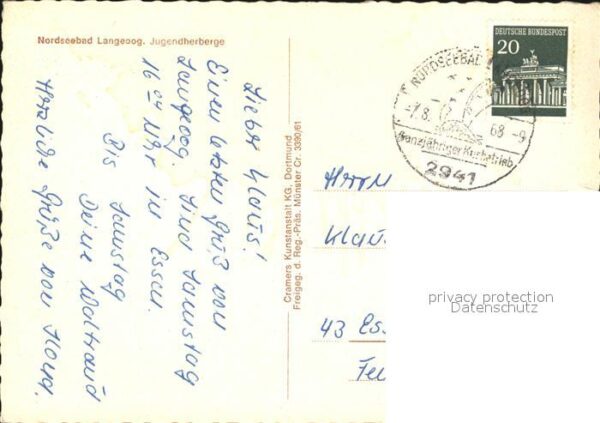 Nordseebad Langeoog. Jugendherberge
Lieber Klaus!
Einen letzten Gruß von
Langeoog. Sind Samstag
16 04 Uhr in Essen.
Bis Samstag
Deine Waltraud
Herzliche Grüße von
Cramers Kunstanstalt KG, Dortmund
Freigeg. d. Reg.-Präs. Münster Cr. 3390/61
DEUTSCHE BUNDESPOST
20
NORDSEEBAD
-7.8. 68 -9
Ganzjähriger Kurbetrieb
2941
Herrn
Klau
43 Es
Fe
privacy protection
Datenschutz